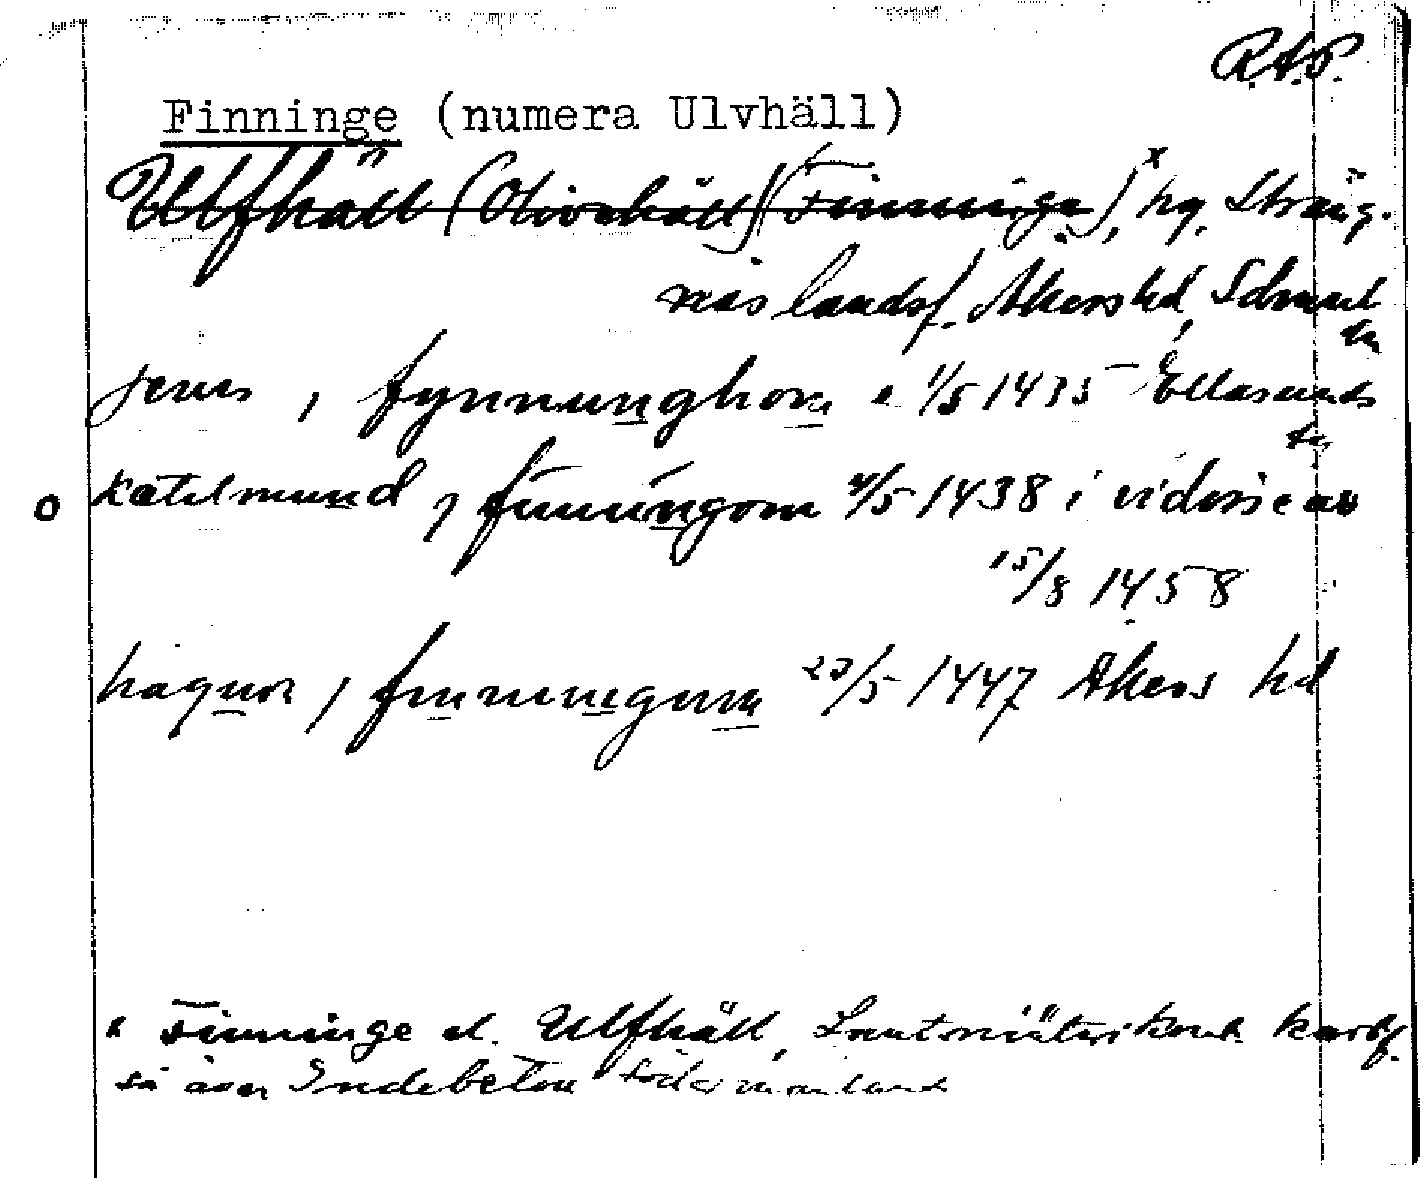 R.A.P.
Finninge (numera Ulvhäll)
Ulfhäll (Olivehäll) (Finninge),x hg. Sträng-
näs landsf. Åkers hd, Sdmanl
jenes, fynnunghom 1/5 1435 Ellasunds
katilmund, finningom 4/5 1438 i vidisse av
15/8 1458
haquon, finningum 23/5 1447 Åkers hd
x Finninge el. Ulfhäll, Lantmäterikont. kartf.
så även Indebetou Södermanland